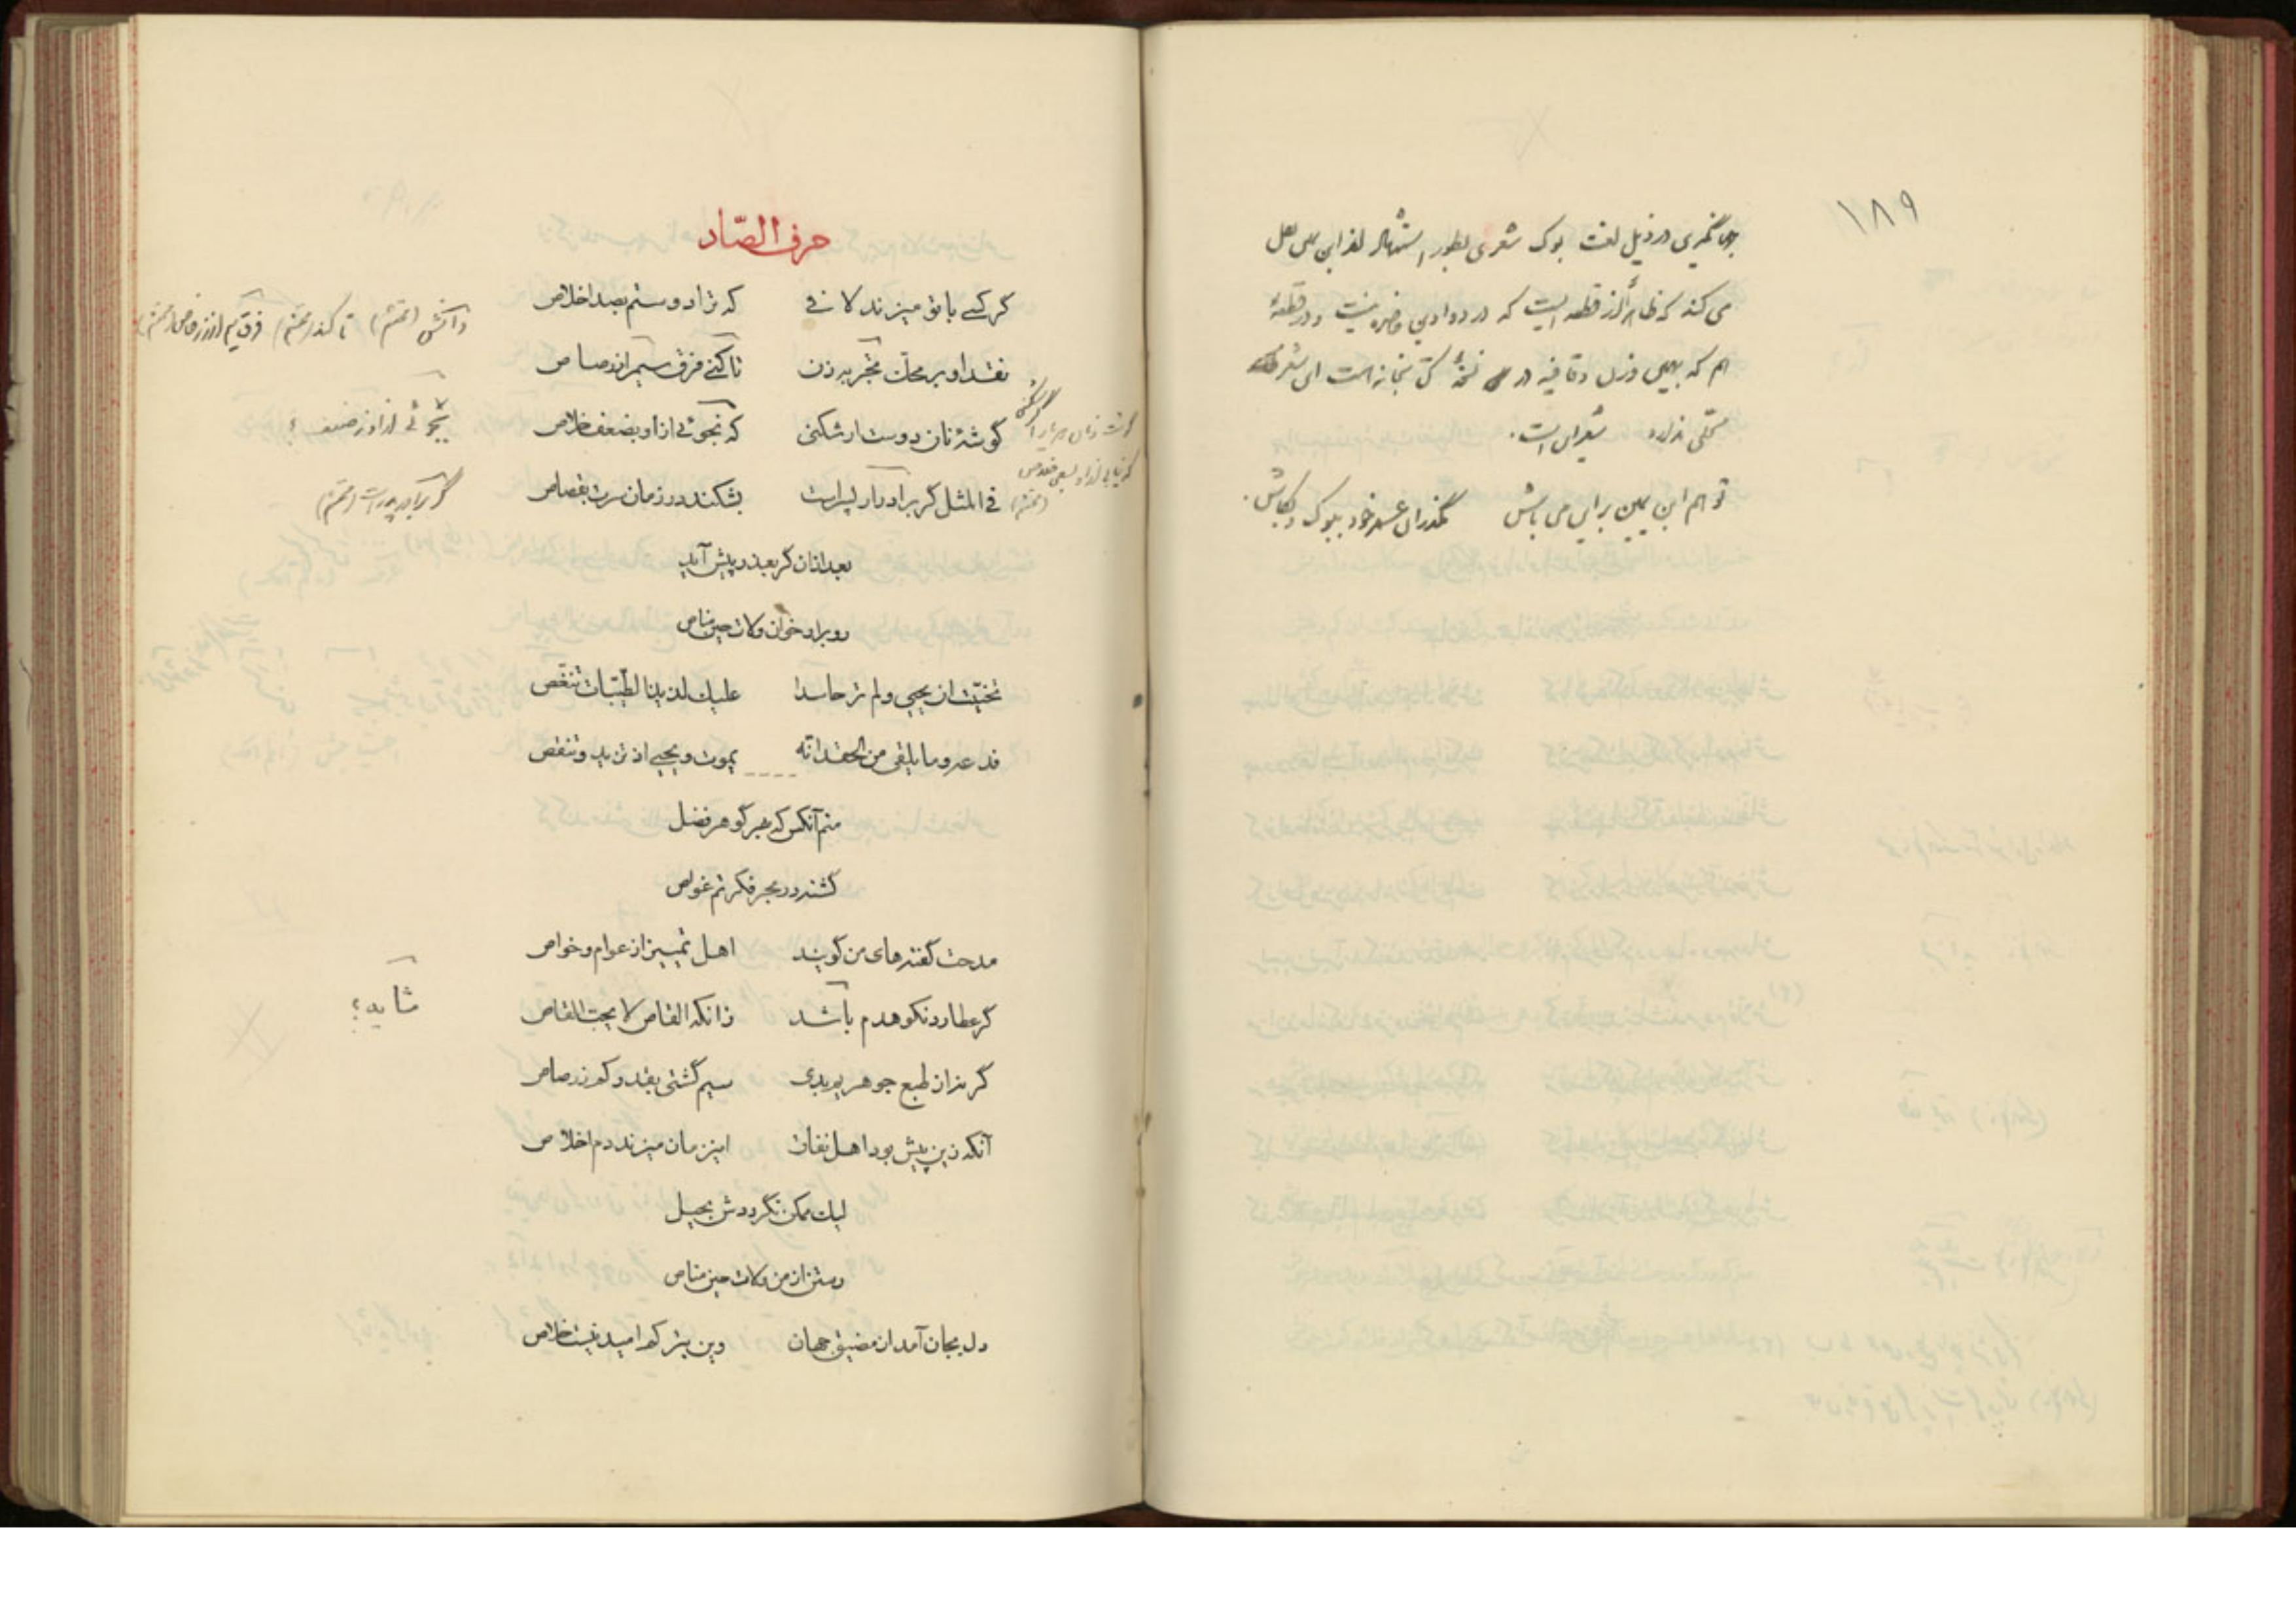 ۱۸۹
جهانگیری در ذیل لغت بوک شعری بطور استشهاد از ابن یمین نقل
می کند که ظاهراً از قطعه ایست که در دواوین حاضره نیست و در قطعهٔ
هم که بهمین وزن و قافیه در نسخهٔ کتابخانه است این شعر
محلی ندارد شعر این است.
تو هم ابن یمین برین می باش مگذران عمر خود ببوک و بکاش.
حرف الصّاد
گر کسے با تو میزند لافے که ترا دوستم بصد اخلاص
نقد او بر محکّ تجربه زن تا کنے فرق سیم از رصاص
گوشهٔ نان دوست ار شکنی که نجوئے ازاو بضعف خلاص
فے المثل گر برادر پسرست بشکند در زمان سرت بقصاص
بعد ازان گر بعذر پیش آید
رو براو خوان ولات حین مناص
تخیّت ان یحیی ولم تر حاسدا علیك لدینا لطّیّبات تنغّص
فد عرو ما یلقی من الحقد انّه یموت و یحیے اذ تزید و تنقص
منم آنکس که بهر گوهر فضل
گشته در بحر فکرتم غواص
مدحت گفته های من گویند اهل تمییز از عوام و خواص
گر عطارد نکوهدم باشد زانکه القاص لا یحبّ القاص
گر نزان طبع جوهریم بدی سیم گشتی بقدر کم ز رصاص
آنکه زین پیش بود اهل نفاق این زمان میزند دم اخلاص
لیك ممکن نگرددش بحیل
رستن از من ولات حین مناص
دل بجان آمد از مضیق جهان وین بتر کم امید نیست خلاص
تا کند
بجوئی ازاو ز ضعف ؟
شاید؟